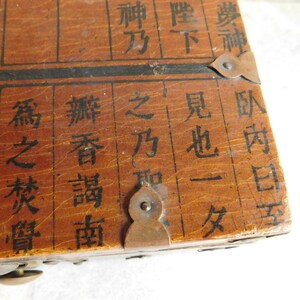 夢神
陛下
神乃
臥内曰至
見也一夕
之乃
瓣香謁南
為之焚覺